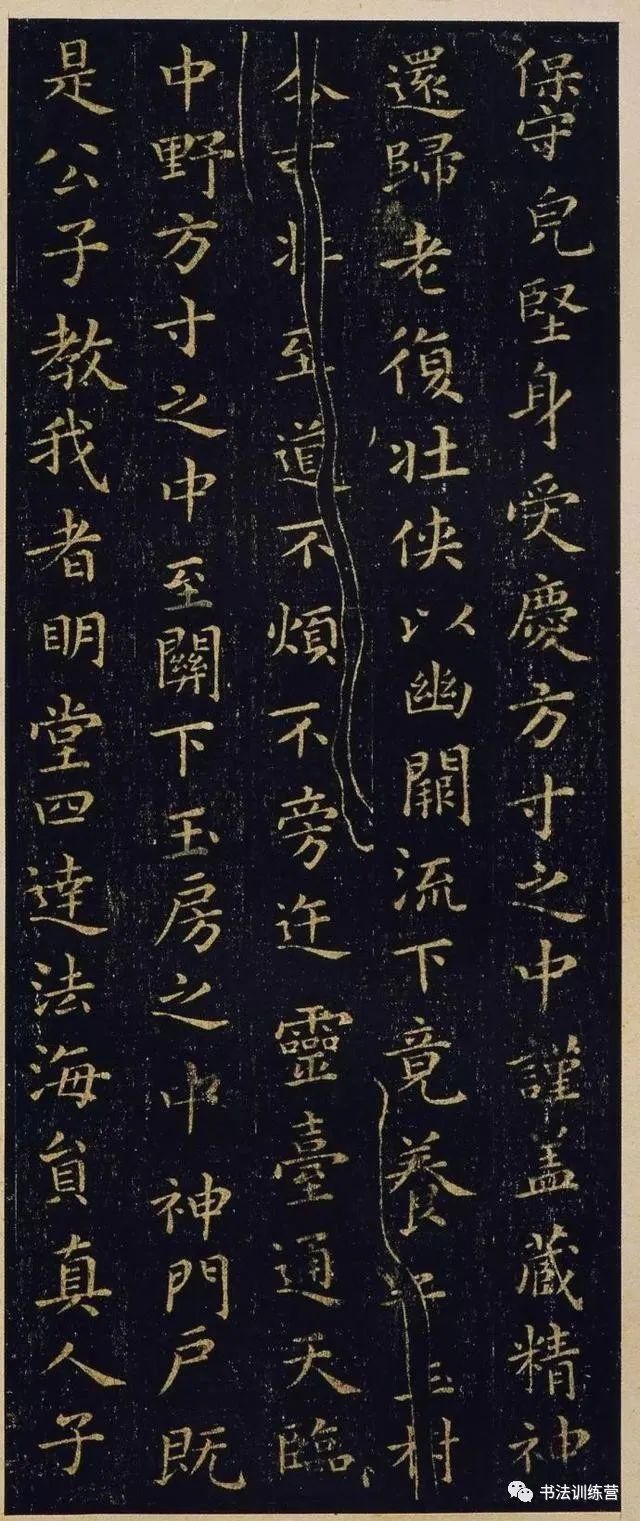 保守皃堅身受慶方寸之中謹盖藏精神
還歸老復壮侠以幽闕流下竟養子玉樹
令可壮至道不煩不旁迕靈臺通天臨
中野方寸之中至關下玉房之中神門户既
是公子教我者明堂四達法海貟真人子
书法训练营